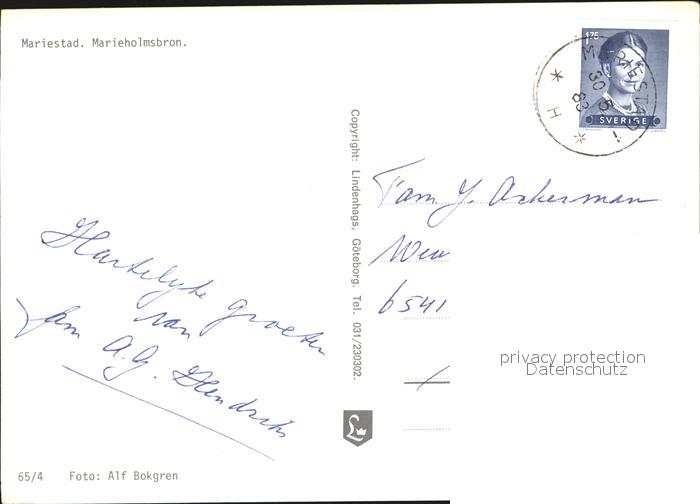 Mariestad. Marieholmsbron.
1.75
MARIESTAD 1
30 5
83
* H *
SVERIGE
Copyright: Lindenhags, Göteborg. Tel. 031/230302.
Fam Y. Ackerman
6541
Hartelyke groeten
van
fam A.G. Hendriks
privacy protection
Datenschutz
L
65/4 Foto: Alf Bokgren